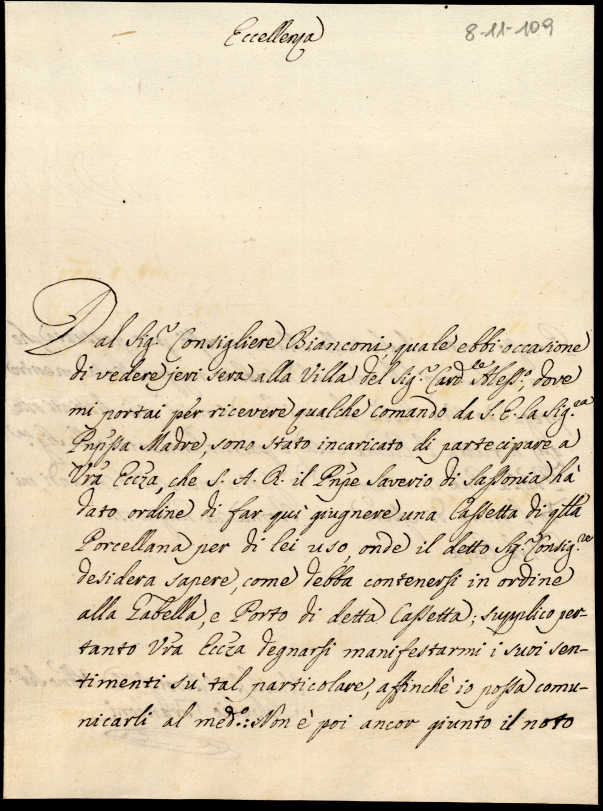 8-11-109
Eccellenza
Dal Sig.r Consigliere Bianconi, quale ebbi occasione
di vedere jeri sera alla Villa del Sig.r Card.le Aless.o, dove
mi portai per ricevere qualche comando da S. E. la Sig.ra
Pnpssa Madre, sono stato incaricato di partecipare a
Vrã Eccza, che S. A. R. il Pnpe Saverio di Sassonia hà
dato ordine di far quì giugnere una Cassetta di qtta
Porcellana per di lei uso, onde il detto Sig.r Consig.re
desidera sapere, come debba contenersi in ordine
alla Tabella, e Porto di detta Cassetta; supplico per-
tanto Vrã Eccza degnarsi manifestarmi i suoi sen-
timenti sù tal particolare, affinchè io possa comu-
nicarli al med.o: Non è poi ancor giunto il noto